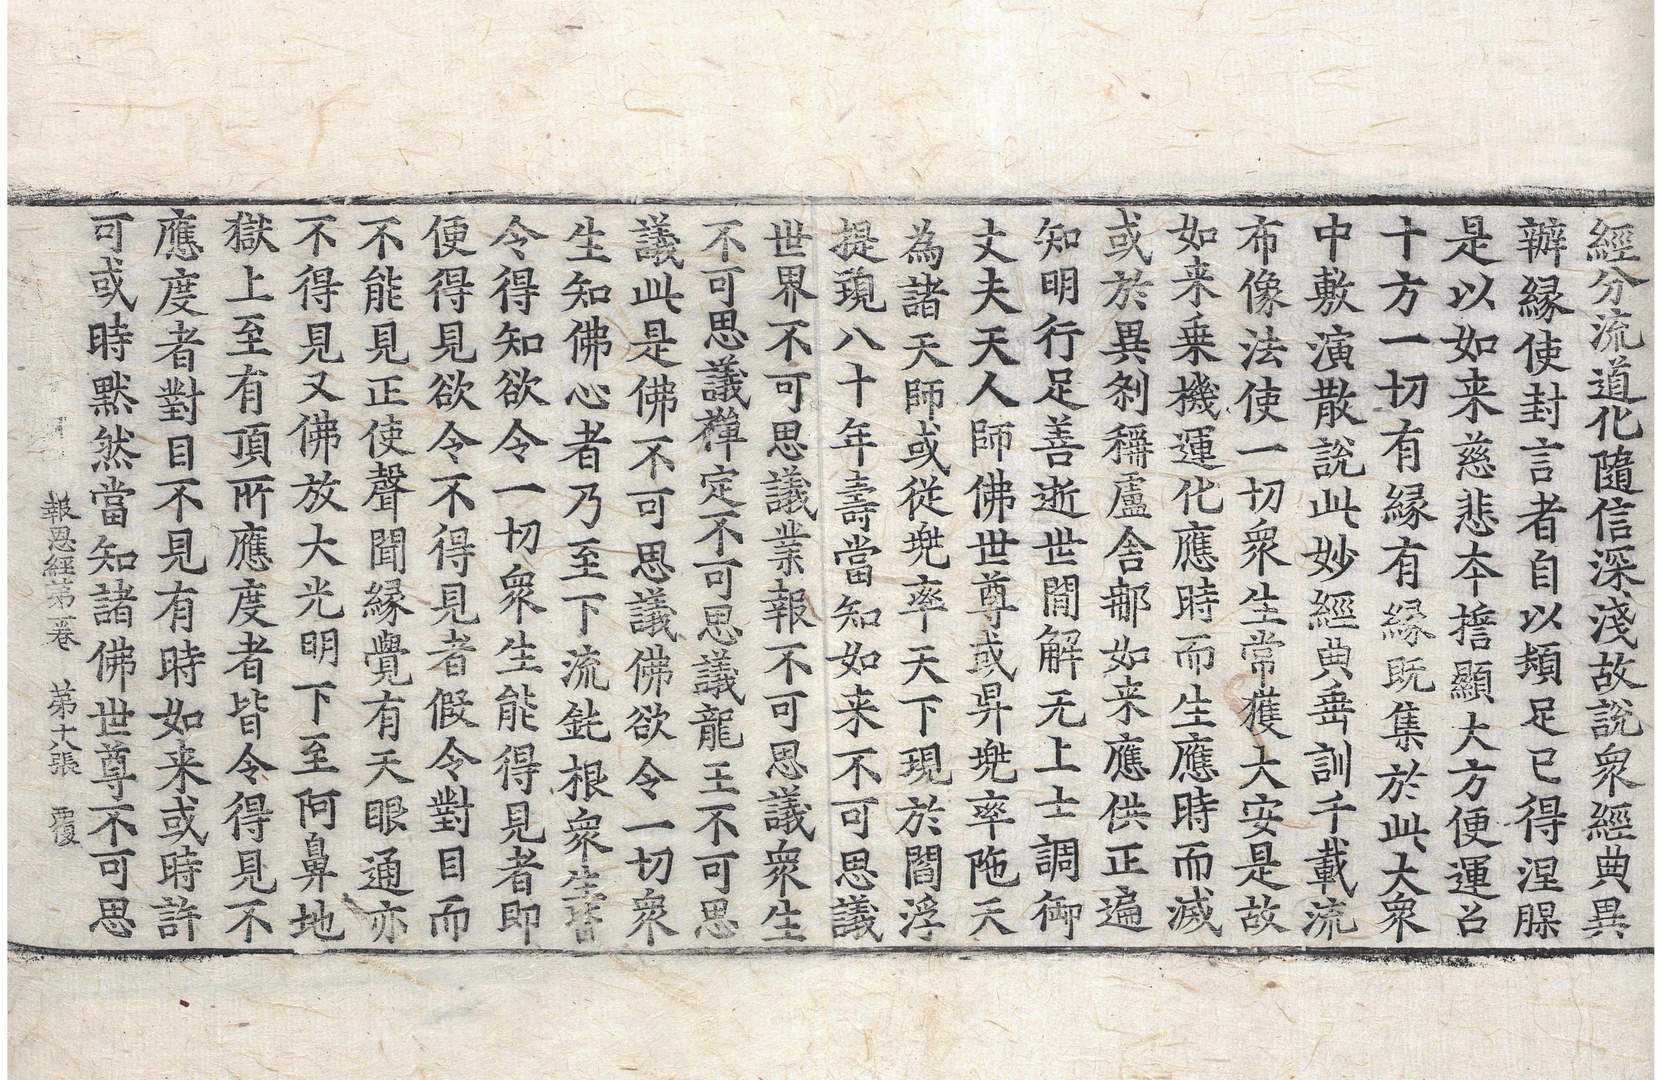 經分流道化隨信深淺故說衆經典異
辯縁使封言者自以頬足已得涅𦠆
是以如来慈悲夲擔顯大方便運召
十方一切有縁有縁既集於此大衆
中敷演散說此妙經典垂訓千載流
布像法使一切衆生常獲大安是故
如来乗機運化應時而生應時而滅
或於異刹稱盧舎那如来應供正遍
知明行足善逝世間解无上士調御
丈夫天人師佛世尊或昇兠率陁天
為諸天師或從兠率天下現於閻浮
提現八十年壽當知如来不可思議
世界不可思議業報不可思議衆生
不可思議禪定不可思議龍王不可思
議此是佛不可思議佛欲令一切衆
生知佛心者乃至下流鈍根衆生皆
令得知欲令一切衆生能得見者即
便得見欲令不得見者假令對目而
不能見正使聲聞縁覺有天眼通亦
不得見又佛放大光明下至阿鼻地
獄上至有頂所應度者皆令得見不
應度者對目不見有時如来或時許
可或時黙然當知諸佛世尊不可思
報恩經第二卷　第十八張　覆